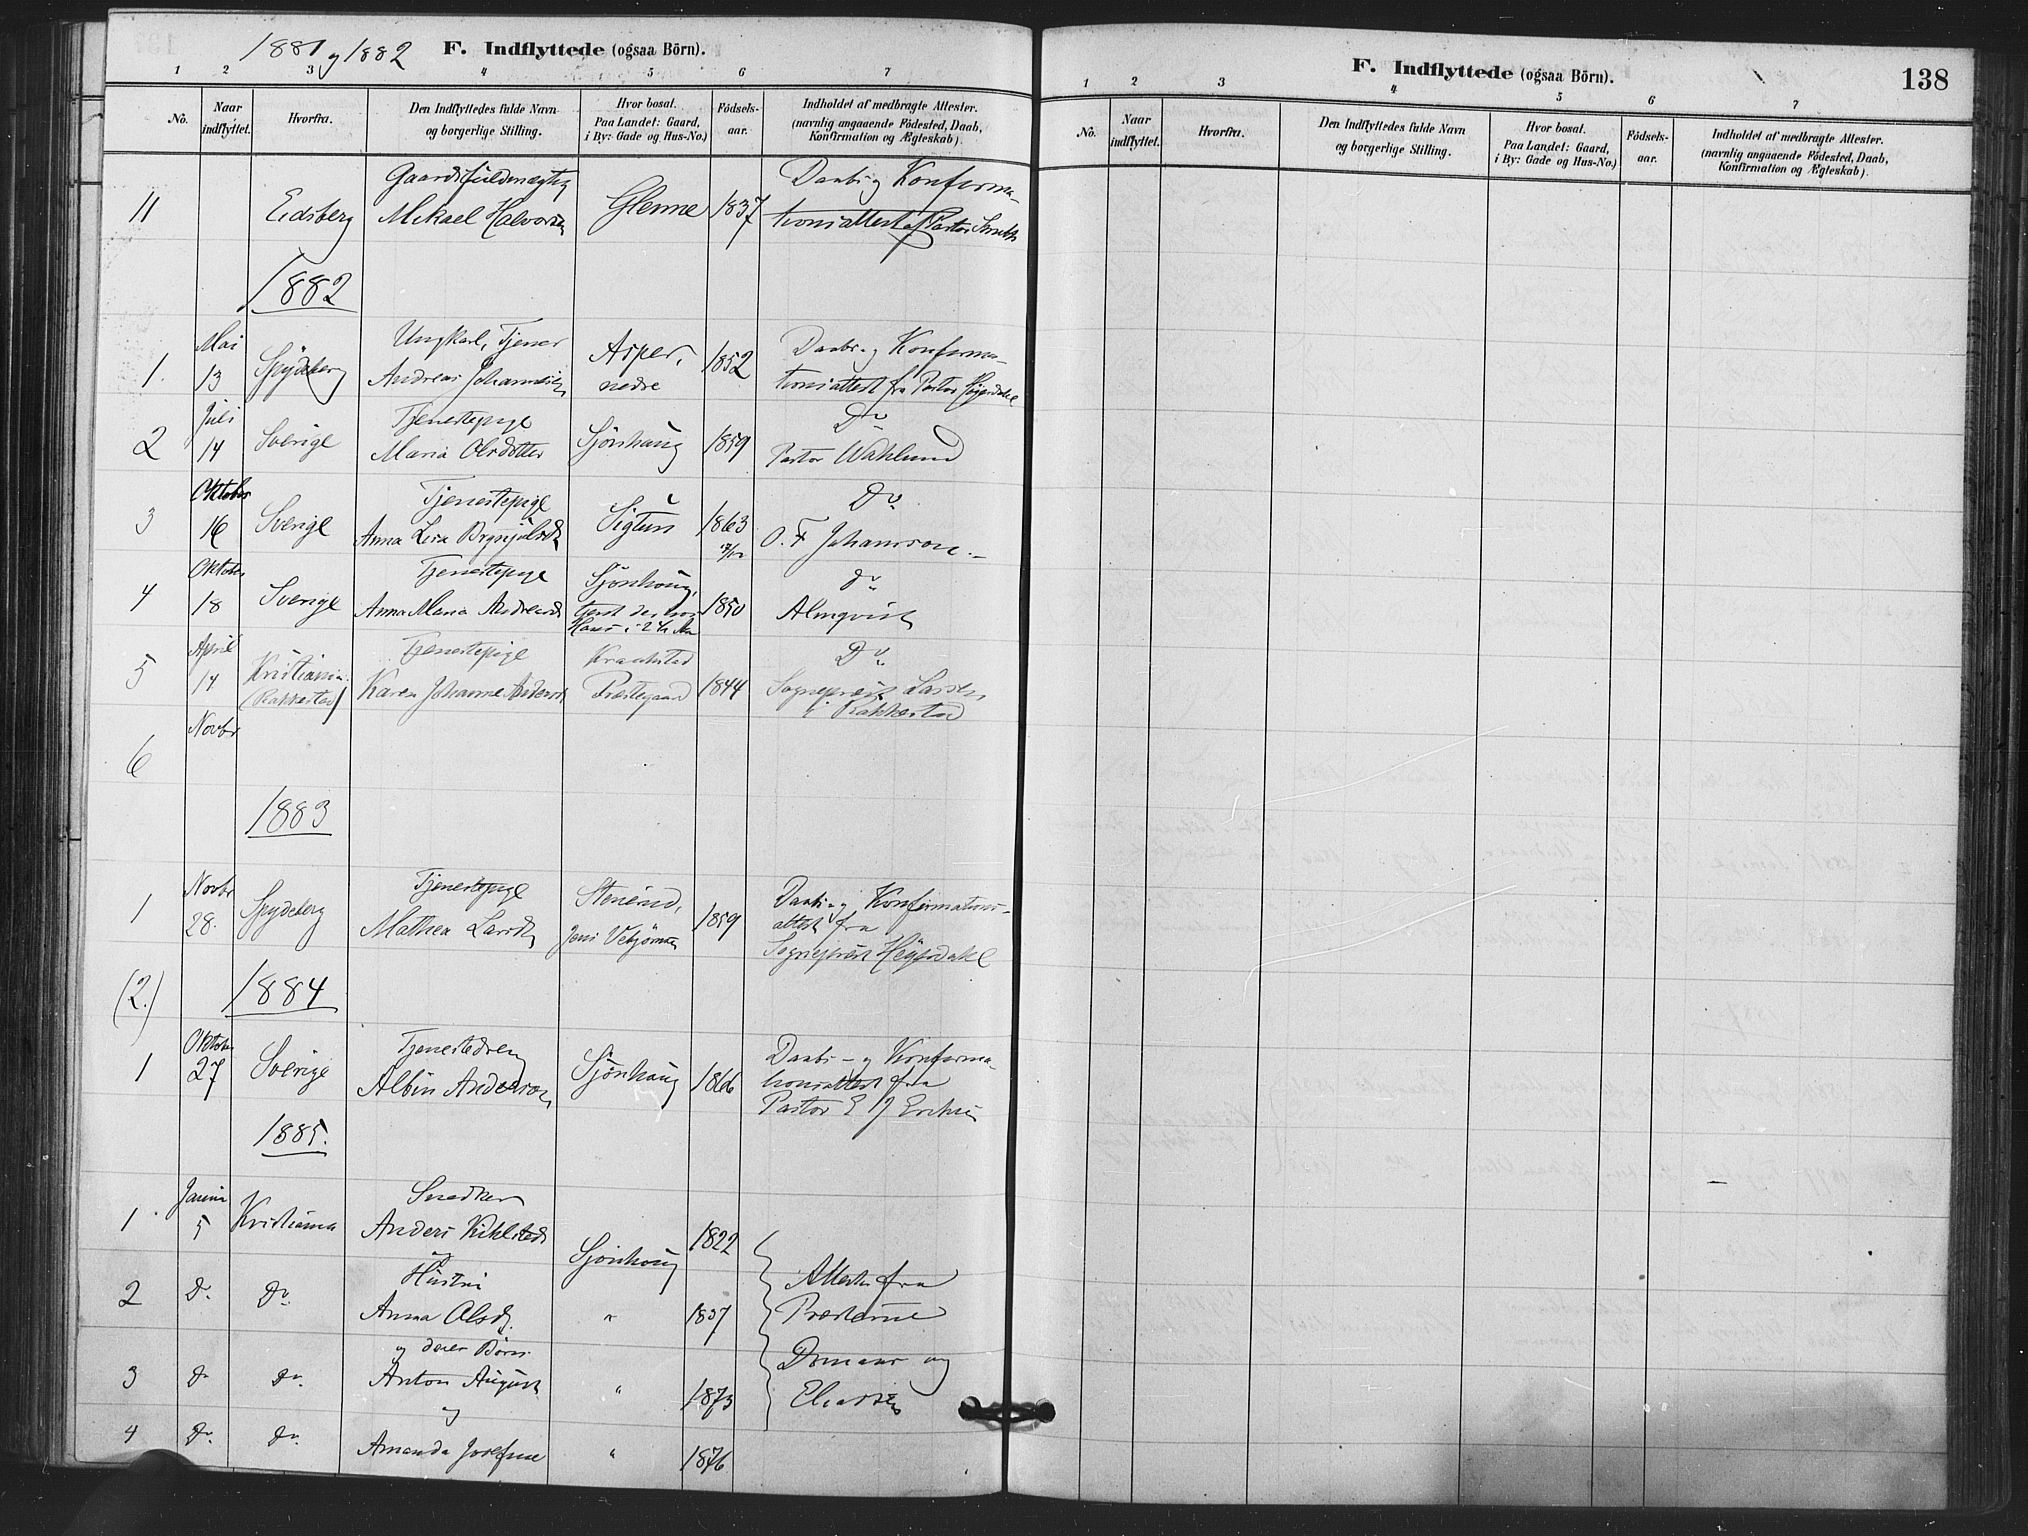 1881 og 1882
F. Indflyttede (ogsaa Börn).
1 2 3 4 5 6 7
No.
Naar indflyttet.
Hvorfra.
Den Indflyttedes fulde Navn og borgerlige Stilling.
Hvor bosat. Paa Landet: Gaard, i By: Gade og Hus-No.)
Födsels-aar.
Indholdet af medbragte Attester. (navnlig angaaende Födested, Daab, Konfirmation og Ægteskab).
Gaardsfuldmægtig Daabs og Konfirma-
11 Eidsberg Mikael Halvorsen Glenne 1837 tionsattest af Pastor
1882
Mai Ungkarl, Tjener Asper, Daabs- og Konfirma-
1. 13 Spydeberg Andreas Johannesen nedre 1852 tionsattest fra Pastor Høyesdahl
Juli Tjenestepige Do
2 14 Sverige Maria Olsdotter Sjönhaug 1859 Pastor Wahlund
Oktober Tjenestepige Do
3 16 Sverige Anna Lisa Brynjulsd. Sigtun 1863 O. F. Johansson.-
Oktober Tjenestepige Sjönhoug, do
4 18 Sverige Anna Maria Andreasd. 1850 Almqvist
April Tjenestepige Kraakstad Do
5 14 Kristiania Karen Johanne Andersd. Præstegaard 1844 Sogneprest Lassen
(Rakkestad) i Rakkestad
Novbr
6
1883
Novbr Tjenestepige Stenerud, Daabs- og Konfirmations-
1 28. Spydeberg Mathea Larsd. Jens Vebjørnsen 1859 attest fra
Sogneprest Høyesdahl
(2.) 1884
Oktober Tjenestedreng Daabs- og Konfirma-
1 27 Sverige Albin Anderson Sjönhaug 1866 tionsattest fra
Pastor E J
1885.
Januar Snedker
1 5 Kristiania Anders Kihlstedt Sjönhoug 1822
Hustru Attester fra
2 Do. Do. Anna Olsd. " 1837 Presterne
og deres Börn Domaas og
3 do do. Anton August " 1873 Eliassen
og
4 do. do. Amanda Josefine " 1876
F. Indflyttede (ogsaa Börn).
138
1 2 3 4 5 6 7
No.
Naar indflyttet.
Hvorfra.
Den Indflyttedes fulde Navn og borgerlige Stilling.
Hvor bosat. Paa Landet: Gaard, i By: Gade og Hus-No.)
Födsels-aar.
Indholdet af medbragte Attester. (navnlig angaaende Födested, Daab, Konfirmation og Ægteskab).